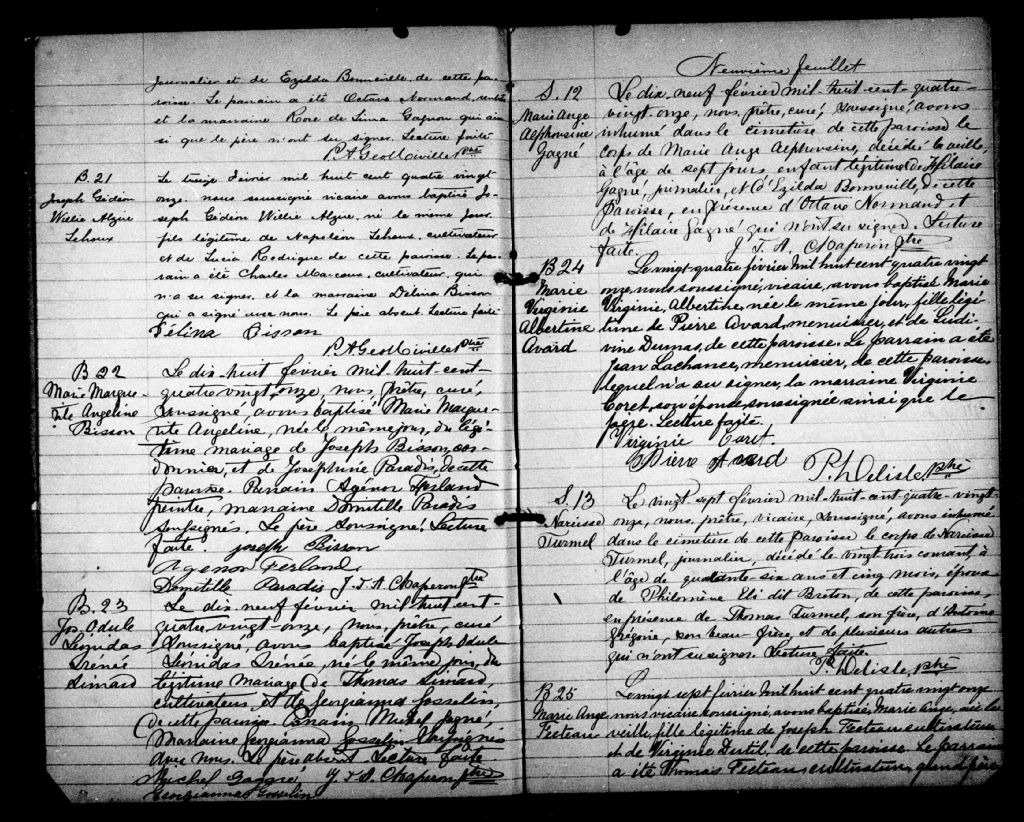 journalier et de Ezilda Bonneville, de cette pa-
roisse. Le parrain a été Octave Normand, rentier
et la marraine Rose de Lima Gagnon qui ain
si que le père n'ont su signer. Lecture faite
Ptre
B. 21
Joseph Gédéon
Willie Alzire
Lehoux
Le treize Février mil huit cent quatre vingt
onze, nous soussigné vicaire avons baptisé Jo-
seph Gédéon Willie Alzire, né le même jour,
fils légitime de Napoléon Lehoux, cultivateur
et de Lucia Rodrigue de cette paroisse. Le par-
rain a été Charles Marcoux, cultivateur, qui
n'a su signer, et la marraine Délina Bisson
qui a signé avec nous. Le père absent. Lecture faite
Délina Bisson
Ptre
B 22
Marie Margue-
rite Angeline
Bisson
Le dix-huit février mil-huit-cent-
quatre vingt-onze, nous, prêtre, curé,
soussigné, avons baptisé Marie Margue-
rite Angeline, née le même jour, du légi-
time mariage de Joseph Bisson, cor-
donnier, et de Josephine Paradis, de cette
paroisse. Parrain Agénor Ferland
peintre, marraine Domitille Paradis
soussignés. Le père soussigné. Lecture
faite. Joseph Bisson
Agenor Ferland
Domitille Paradis J. T. A. Chaperon Ptre
B. 23
Jos. Odule
Léonidas
Irénée
Simard
Le dix neuf février mil-huit-cent-
quatre-vingt-onze, nous, prêtre, curé
soussigné, avons baptisé Joseph Odule
Léonidas Irénée, né le même jour, du
légitime mariage de Thomas Simard,
cultivateur, et de Georgianna Gosselin,
de cette paroisse. Parrain Michel Gagné,
Marraine Georgianna Gosselin soussignés
avec nous. Le père absent. Lecture faite
Michel Gagné J. T. A. Chaperon Ptre
Georgianna Gosselin
Neuvième feuillet
S. 12
Marie Ange
Alphonsine
Gagné
Le dix-neuf février mil-huit-cent-quatre-
vingt-onze, nous, prêtre, curé, soussigné, avons
inhumé dans le cimetière de cette paroisse le
corps de Marie Ange Alphonsine, décédé la veille,
à l'âge de sept jours, enfant légitime de Hilaire
Gagné, journalier, et d'Ezilda Bonneville, de cette
Paroisse, en présence d'Octave Normand et
de Hilaire Gagné qui n'ont su signer. Lecture
faite. J. T. A. Chaperon Ptre
B 24
Marie
Virginie
Albertine
Avard
Le vingt quatre février mil huit cent quatre vingt
onze, nous soussigné, vicaire, avons baptisé Marie
Virginie, Albertine, née le même jour, fille légi-
time de Pierre Avard, menuisier, et de Ludi-
vine Dumas, de cette paroisse. Le parrain a été
Jean Lachance, menuisier, de cette paroisse,
lequel n'a su signer, la marraine Virginie
Coret, son épouse, soussignée ainsi que le
père. Lecture faite.
Virginie Coret.
Pierre Avard
Ph Delisle, Ptre
S. 13
Narcisse
Turmel
Le vingt sept février mil-huit-cent-quatre-vingt-
onze, nous, prêtre, vicaire, soussigné, avons inhumé
dans le cimetière de cette paroisse le corps de Narcisse
Turmel, journalier, décédé le vingt trois courant, à
l'âge de quarante-six ans et cinq mois, époux
de Philomène Eli dit Breton, de cette paroisse,
en présence de Thomas Turmel, son frère, d'Antoine
Grégoire, son beau-frère, et de plusieurs autres
qui n'ont su signer. Lecture faite.
Ph Delisle, Ptre
B 25
Marie Ange
Fecteau
Le vingt sept février mil huit cent quatre vingt onze
nous vicaire soussigné, avons baptisé, Marie Ange, née la
veille, fille légitime de Joseph Fecteau cultivateur
et de Virginie Dutil, de cette paroisse. Le parrain
a été Thomas Fecteau cultivateur, grand père